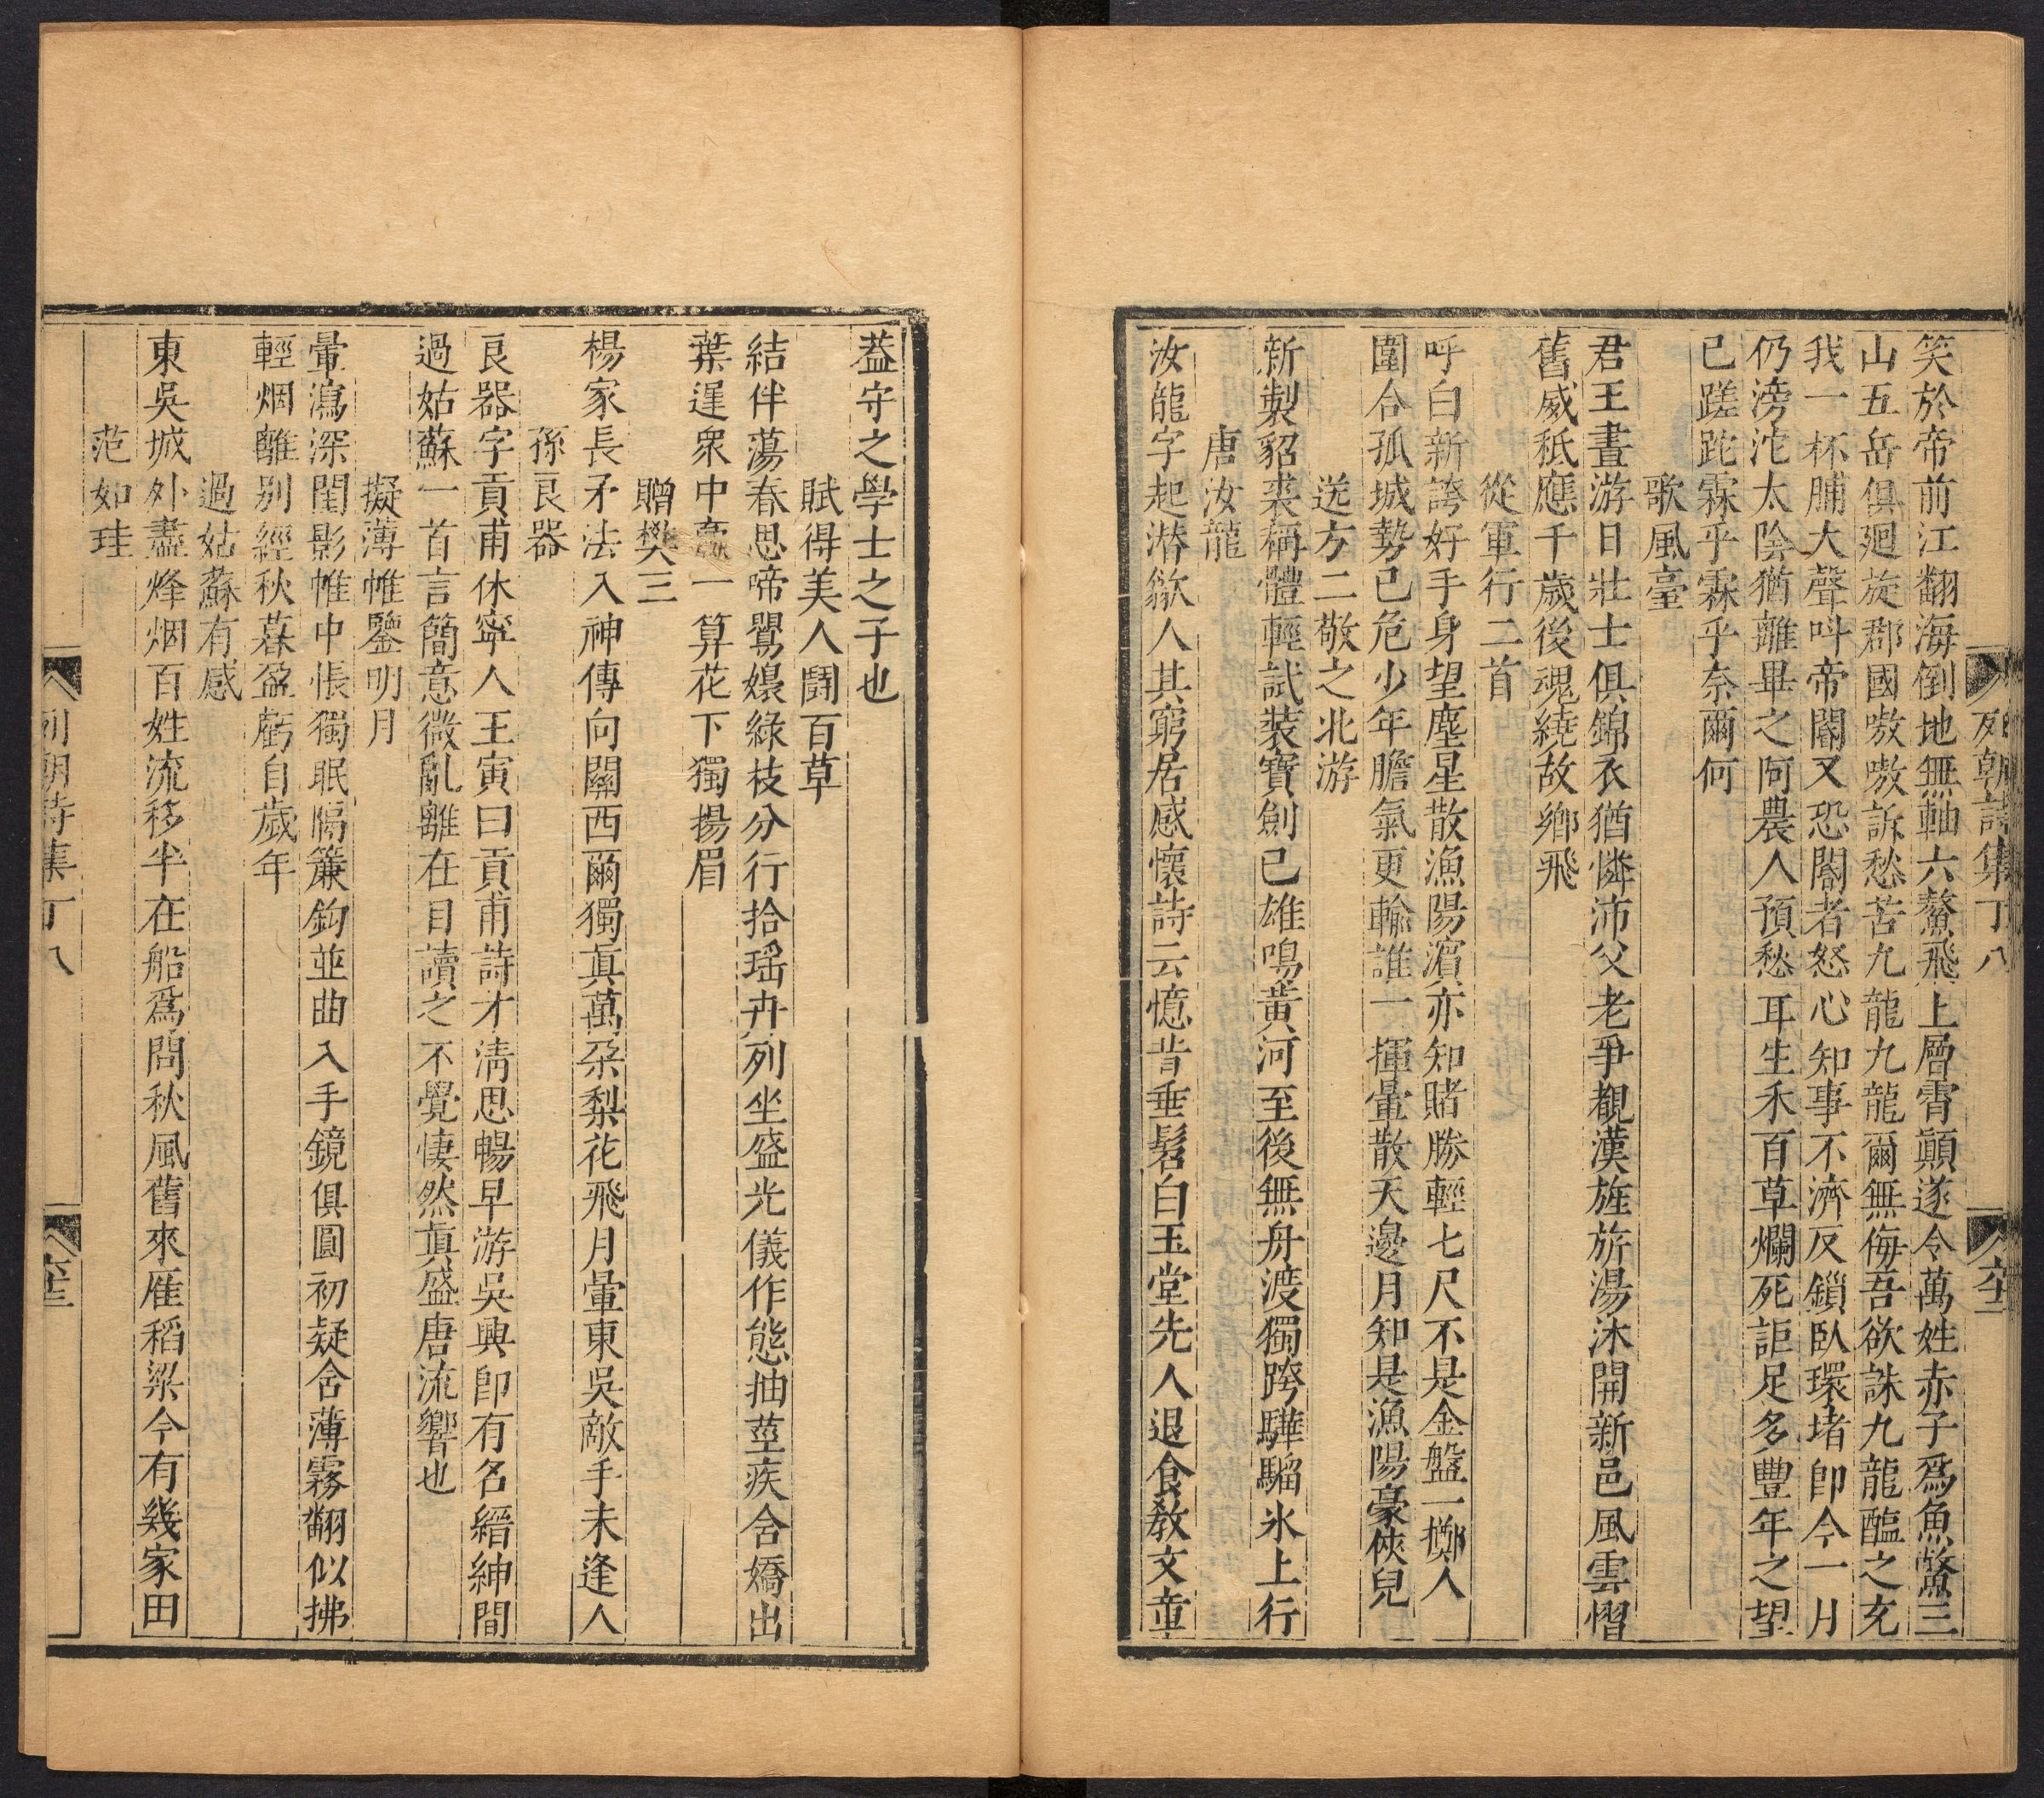 列朝詩集丁八
笑於帝前江翻海倒地無軸六鰲飛上層霄顛遂令萬姓赤子爲魚鱉三
山五岳俱廻旋郡國嗷嗷訴愁苦九龍九龍爾無侮吾欲誅九龍醢之充
我一杯脯大聲呌帝閽又恐閽者怒心知事不濟反鎖臥環堵卽今一月
仍滂沱太陰猶離畢之阿農人預愁耳生禾百草爛死詎足多豐年之望
已蹉跎霖乎霖乎奈爾何
歌風臺
君王晝游日壯士俱錦衣猶憐沛父老爭覩漢旌旂湯沐開新邑風雲慴
舊威秪應千歲後魂繞故鄉飛
從軍行二首
呼白新誇好手身望塵星散漁陽濵亦知賭勝輕七尺不是金盤一擲人
圍合孤城勢已危少年膽氣更輸誰一揮暈散天邊月知是漁陽豪俠兒
送方二敬之北游
新製貂裘稱體輕試裝寶劍已雄鳴黃河至後無舟渡獨跨驊騮氷上行
唐汝龍
汝龍字起潜歙人其窮居感懷詩云憶昔垂髫白玉堂先人退食敎文章
葢守之學士之子也
賦得美人鬪百草
結伴蕩春思啼鸎嬝綠枝分行拾瑤卉列坐盛光儀作態抽莖疾含嬌出
葉遲衆中臝一算花下獨揚眉
贈樊三
楊家長矛法入神傳向關西爾獨眞萬朶梨花飛月暈東吳敵手未逢人
孫良器
良器字貢甫休寧人王寅曰貢甫詩才淸思暢早游吳興卽有名縉紳間
過姑蘇一首言簡意微亂離在目讀之不覺悽然眞盛唐流響也
擬薄帷鑒明月
暈瀉深閨影帷中悵獨眠隔簾鈎並曲入手鏡俱圓初疑含薄霧翻似拂
輕烟離别經秋暮盈虧自歲年
過姑蘇有感
東吳城外盡烽烟百姓流移半在船爲問秋風舊來雁稻粱今有幾家田
范如珪
列朝詩集丁八